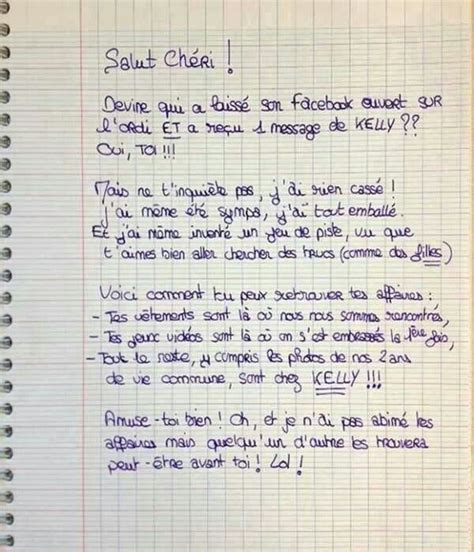 Salut Chéri !
Devine qui a laissé son facebook ouvert SUR
l'ordi ET a reçu 1 message de KELLY ??
Oui, TOI !!!
Mais ne t'inquiète pas, j'ai rien cassé !
J'ai même été sympa, j'ai tout emballé.
Et j'ai même inventé un jeu de piste, vu que
t'aimes bien aller chercher des trucs (comme des filles)
Voici comment tu peux retrouver tes affaires :
- Tes vêtements sont là où nous nous sommes rencontrés,
- Tes jeux vidéos sont là où on s'est embrassés la 1ère fois,
- Tout le reste, y compris les photos de nos 2 ans
de vie commune, sont chez KELLY !!!
Amuse-toi bien ! Oh, et je n'ai pas abimé les
affaires mais quelqu'un d'autre les trouvera
peut-être avant toi ! Lol !